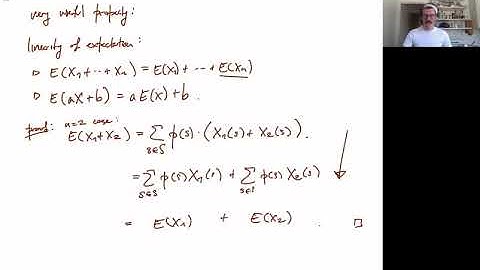 very useful property:
linearity of expectation:
▷ E(X₁+⋯+Xₙ) = E(X₁) + ⋯ + E(Xₙ)
▷ E(aX+b) = a E(X) + b .
proof: n=2 case:
E(X₁+X₂) = ∑_{s∈S} p(s) · (X₁(s) + X₂(s)) .
= ∑_{s∈S} p(s) X₁(s) + ∑_{s∈S} p(s) X₂(s)
= E(X₁) + E(X₂) . □